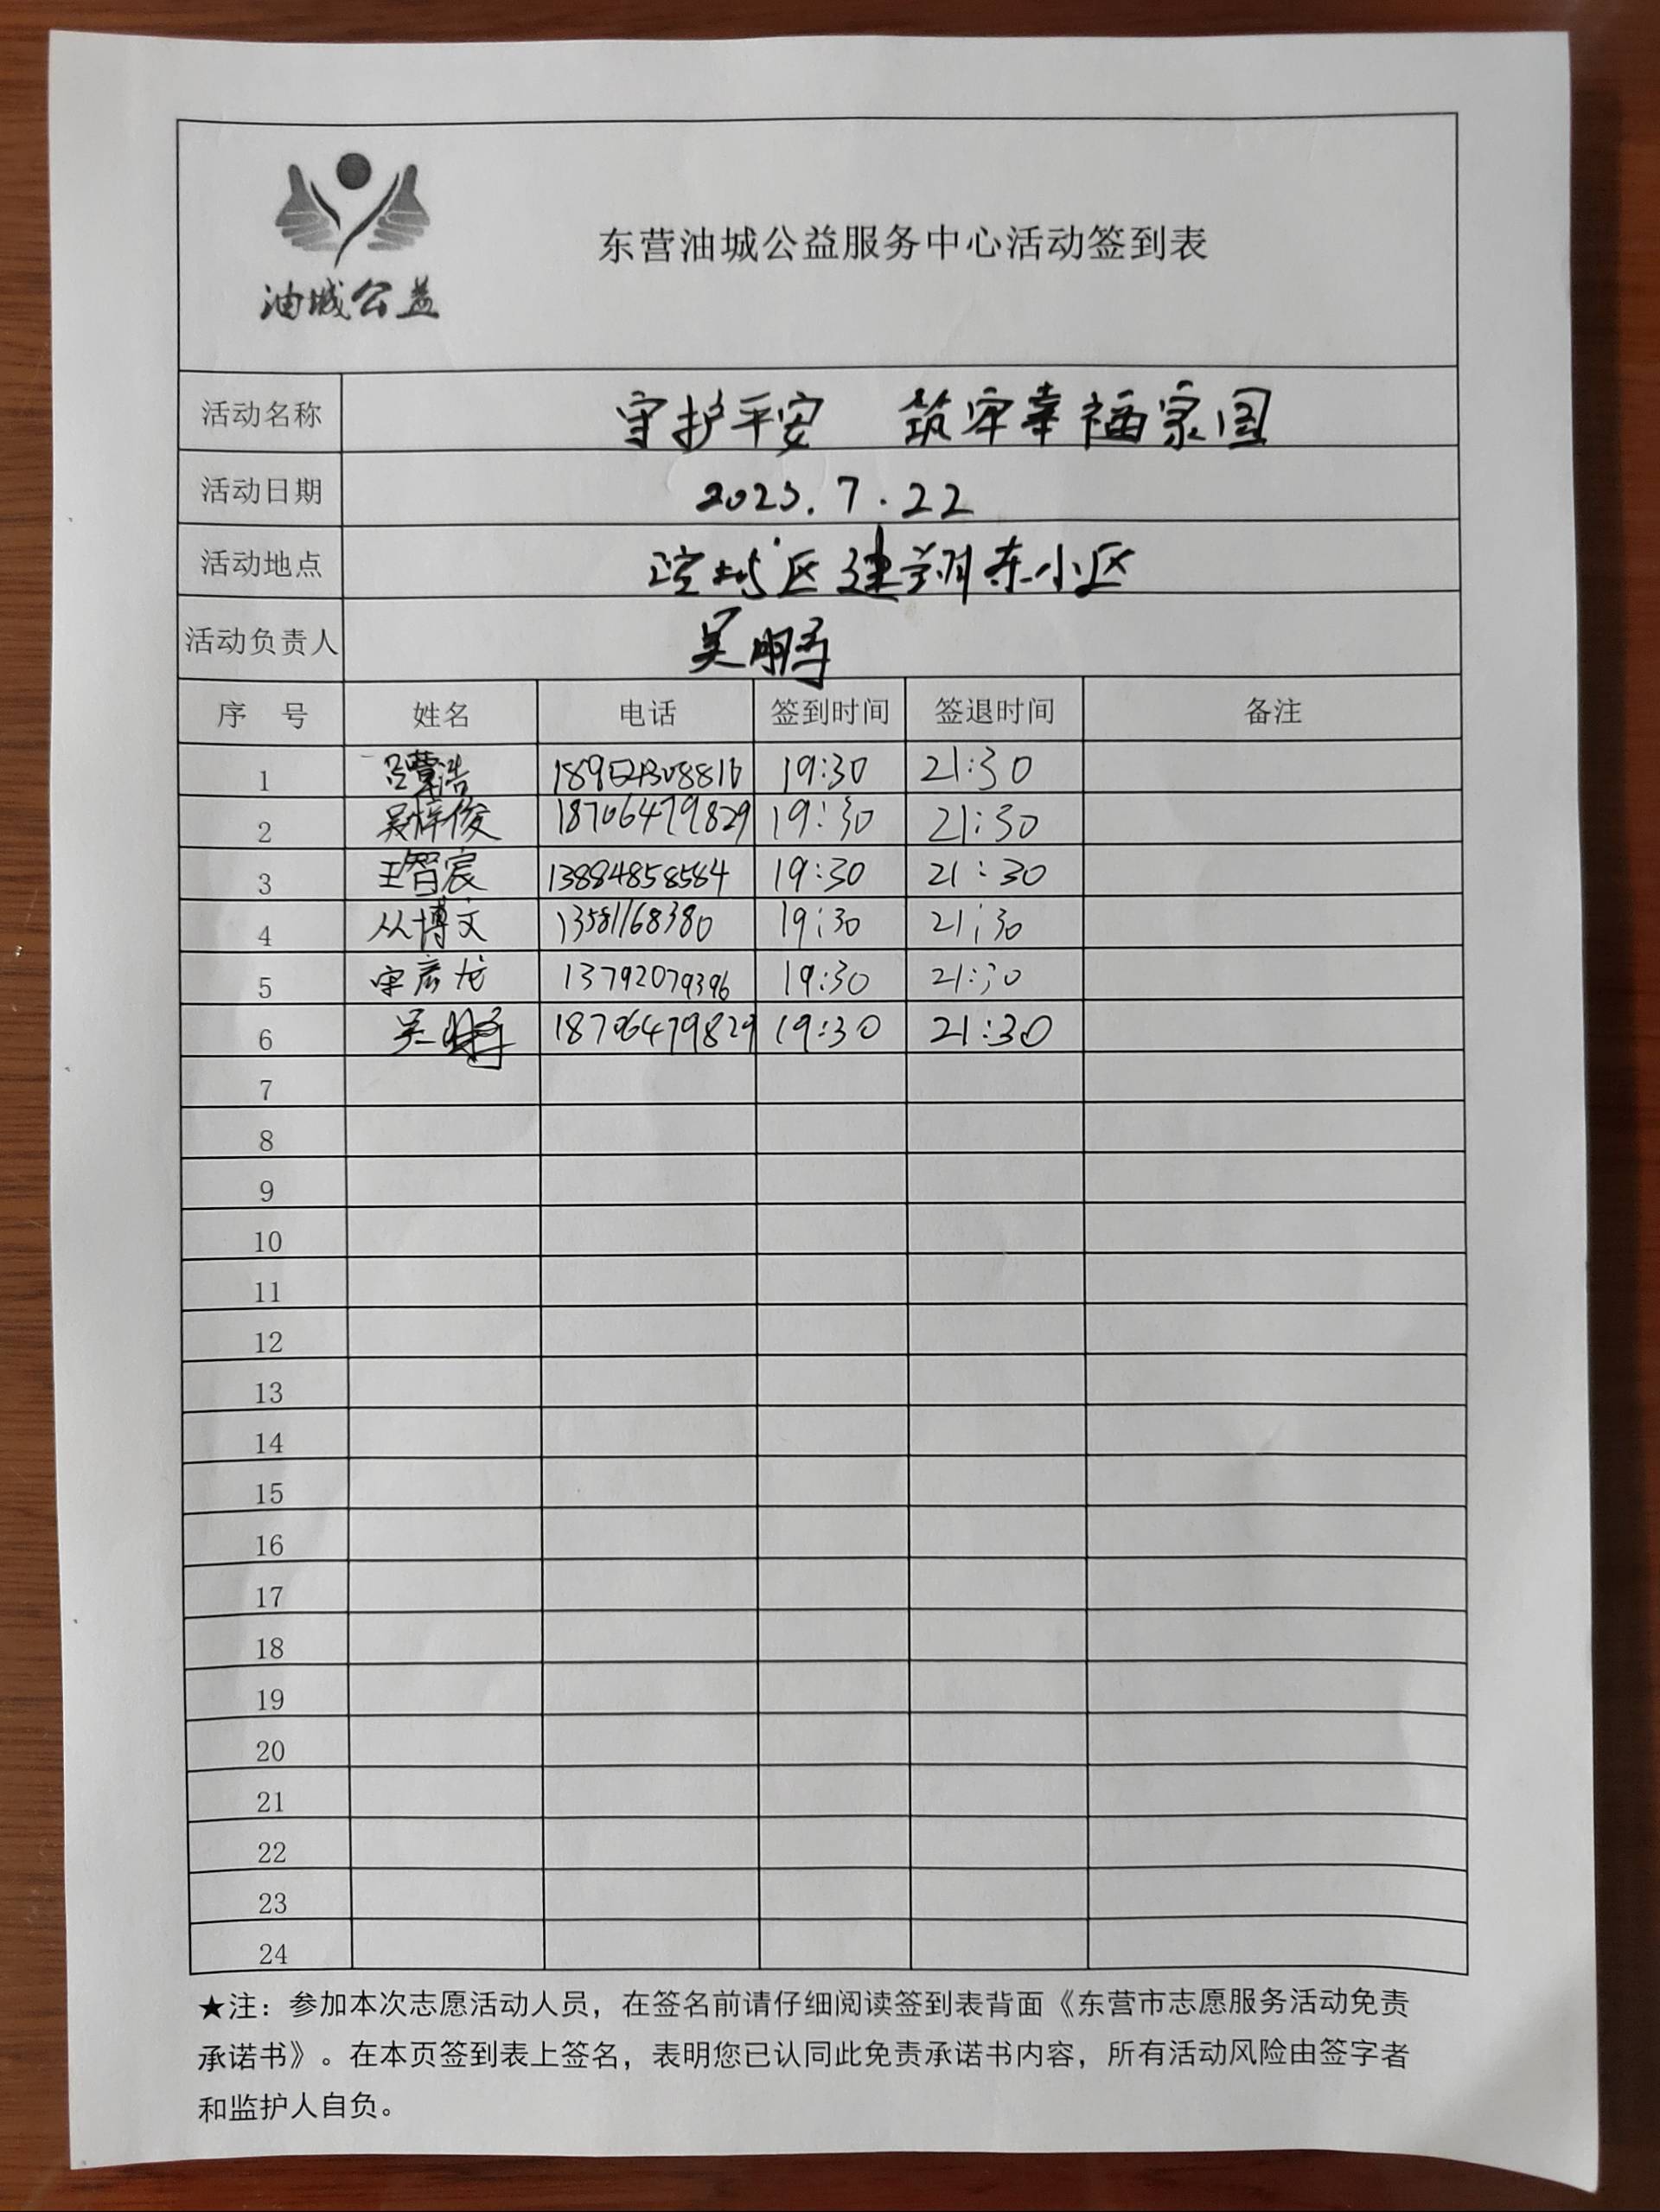 油城公益
东营油城公益服务中心活动签到表
活动名称 守护平安 筑牢幸福家园
活动日期 2023.7.22
活动地点 区建翔东小区
活动负责人 吴鹏
序 号 姓名 电话 签到时间 签退时间 备注
1 19:30 21:30
2 吴梓俊 18706479829 19:30 21:30
3 王智宸 13884858584 19:30 21:30
4 从博文 13581168380 19:30 21:30
5 宋彦龙 13792079396 19:30 21:30
6 吴 18706479829 19:30 21:30
7
8
9
10
11
12
13
14
15
16
17
18
19
20
21
22
23
24
★注：参加本次志愿活动人员，在签名前请仔细阅读签到表背面《东营市志愿服务活动免责
承诺书》。在本页签到表上签名，表明您已认同此免责承诺书内容，所有活动风险由签字者
和监护人自负。